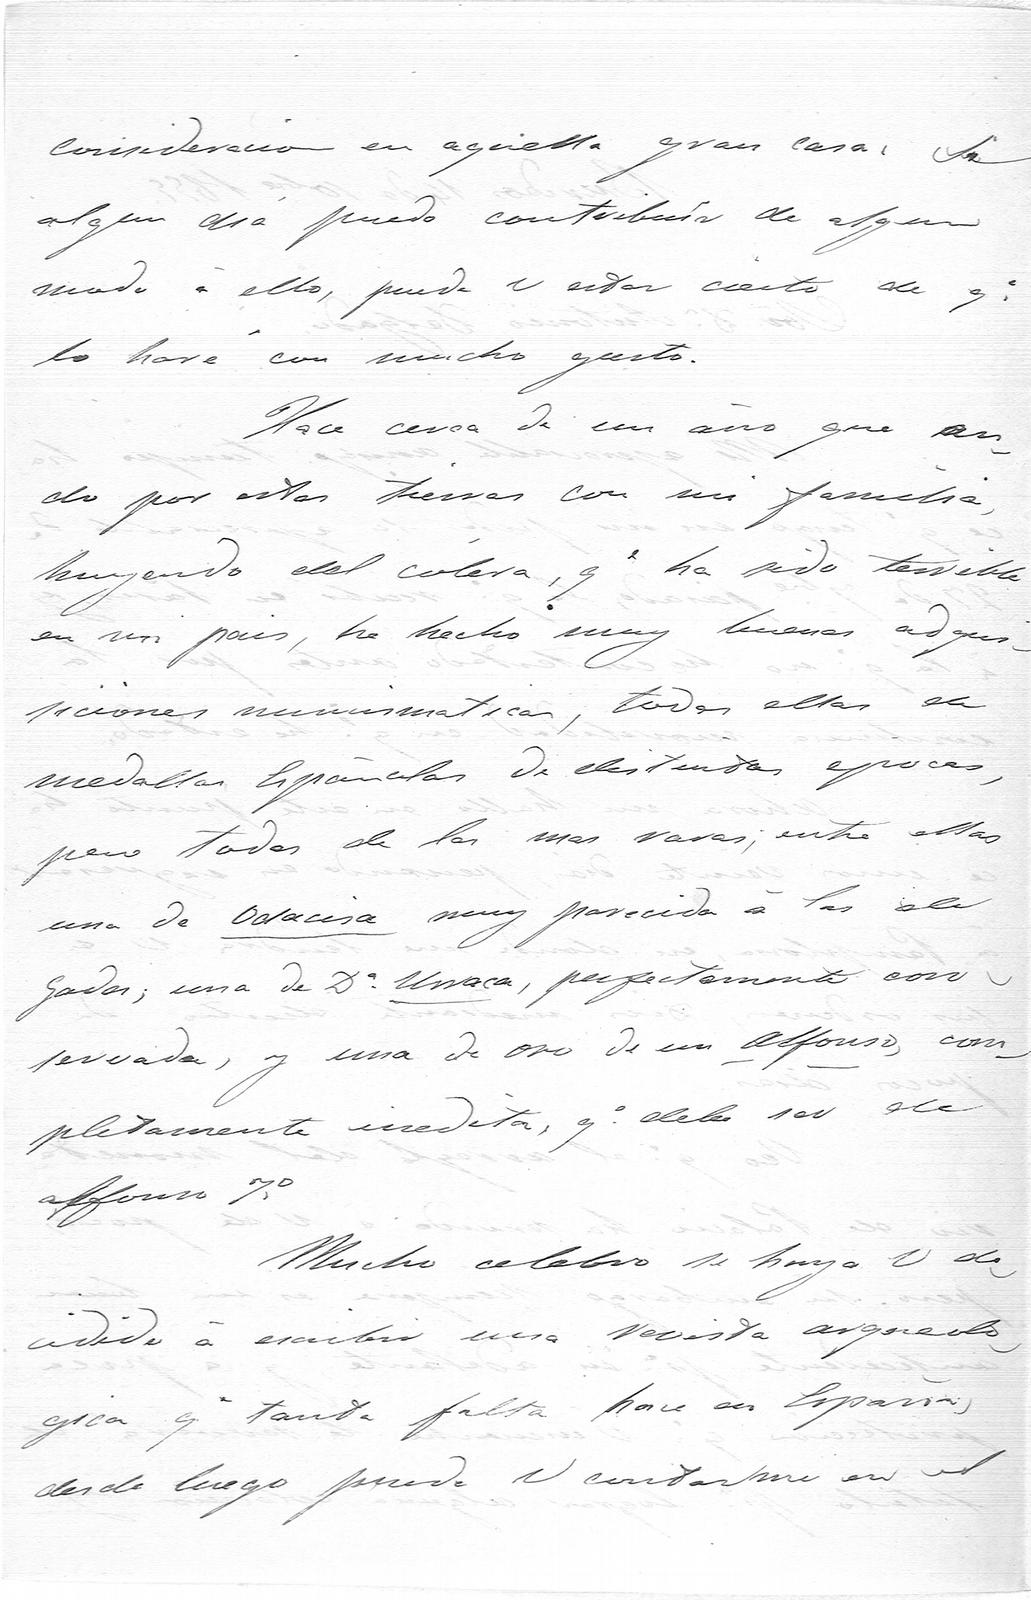 consideracion en aquella gran casa. Si
algun dia puedo contribuir de algun
modo á ello, puede V estar cierto de qe
lo haré con mucho gusto.
Hace cerca de un año que an-
do por estas tierras con mi familia,
huyendo del colera, qe ha sido terrible
en mi pais, he hecho muy buenas adqui-
siciones numismaticas, todas ellas de
medallas Españolas de distintas epocas,
pero todas de las mas raras; entre ellas
una de Odacisa muy parecida á las de
Gades; una de Da. Urraca, perfectamente con-
servada, y una de oro de un Alfonso, com-
pletamente inedita, qe debe ser de
Alfonso 7o
Mucho celebro se haya V de-
cidido á escribir una revista arqueolo-
gica qe tanta falta hace en España,
desde luego puede V contarme en el